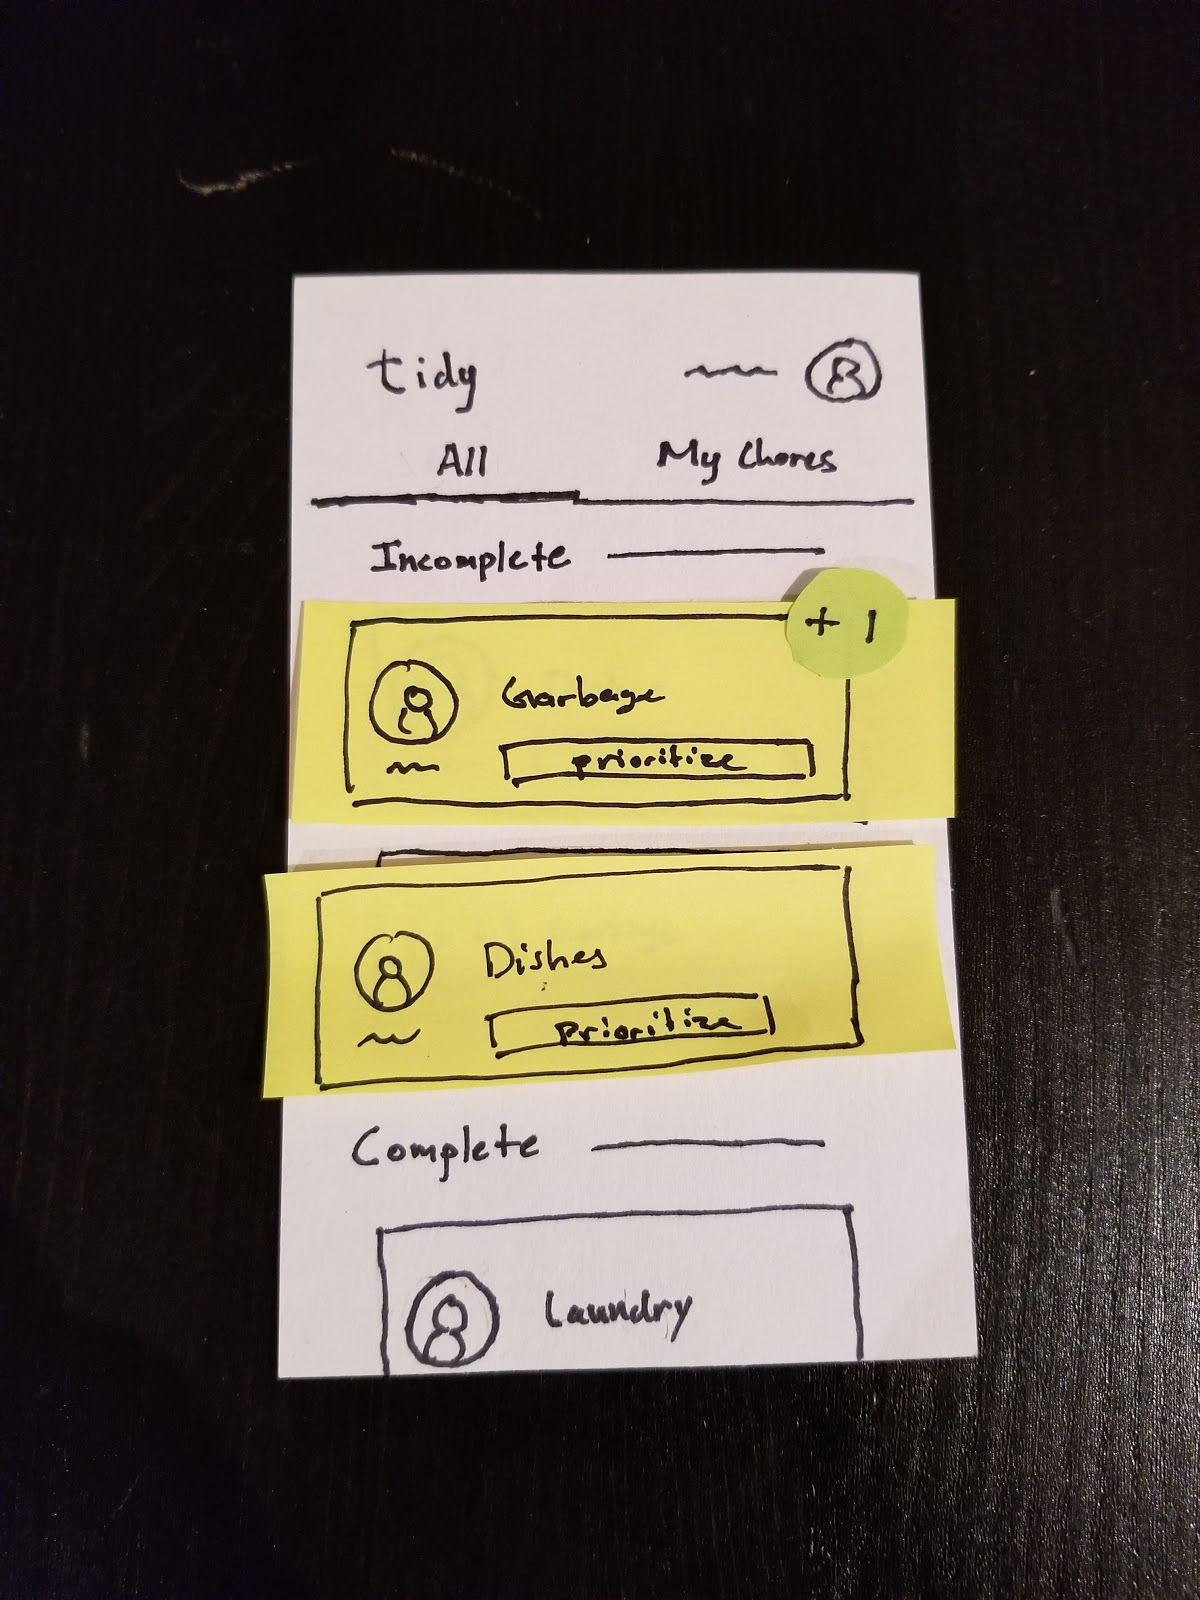 tidy
All My Chores
Incomplete
+1
Garbage
prioritize
Dishes
prioritize
Complete
Laundry